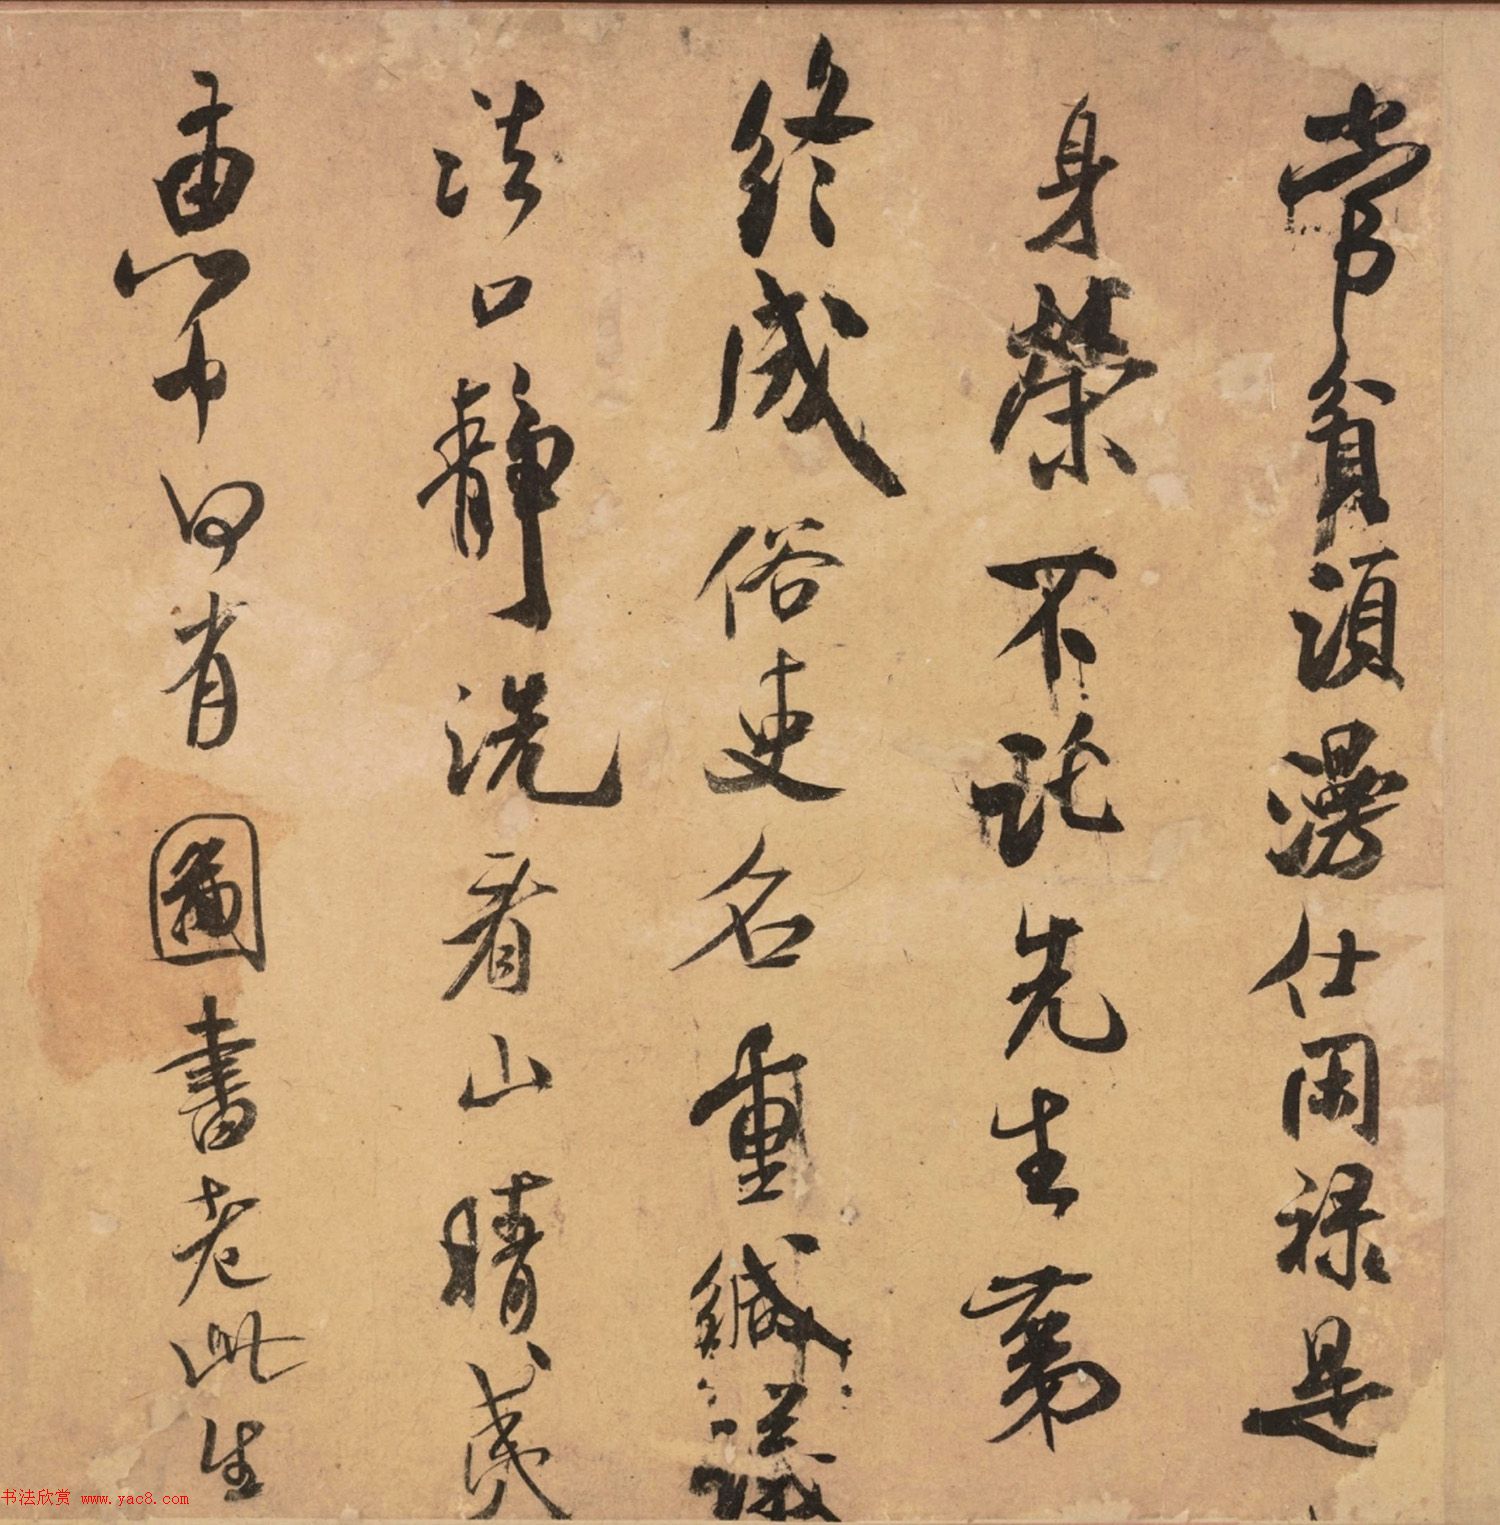 常貧須漫仕閑祿是
身榮不託先生第
終成俗吏名重緘議
法口靜洗看山晴夷
惠中何有圖書老此生
书法欣赏 www.yac8.com